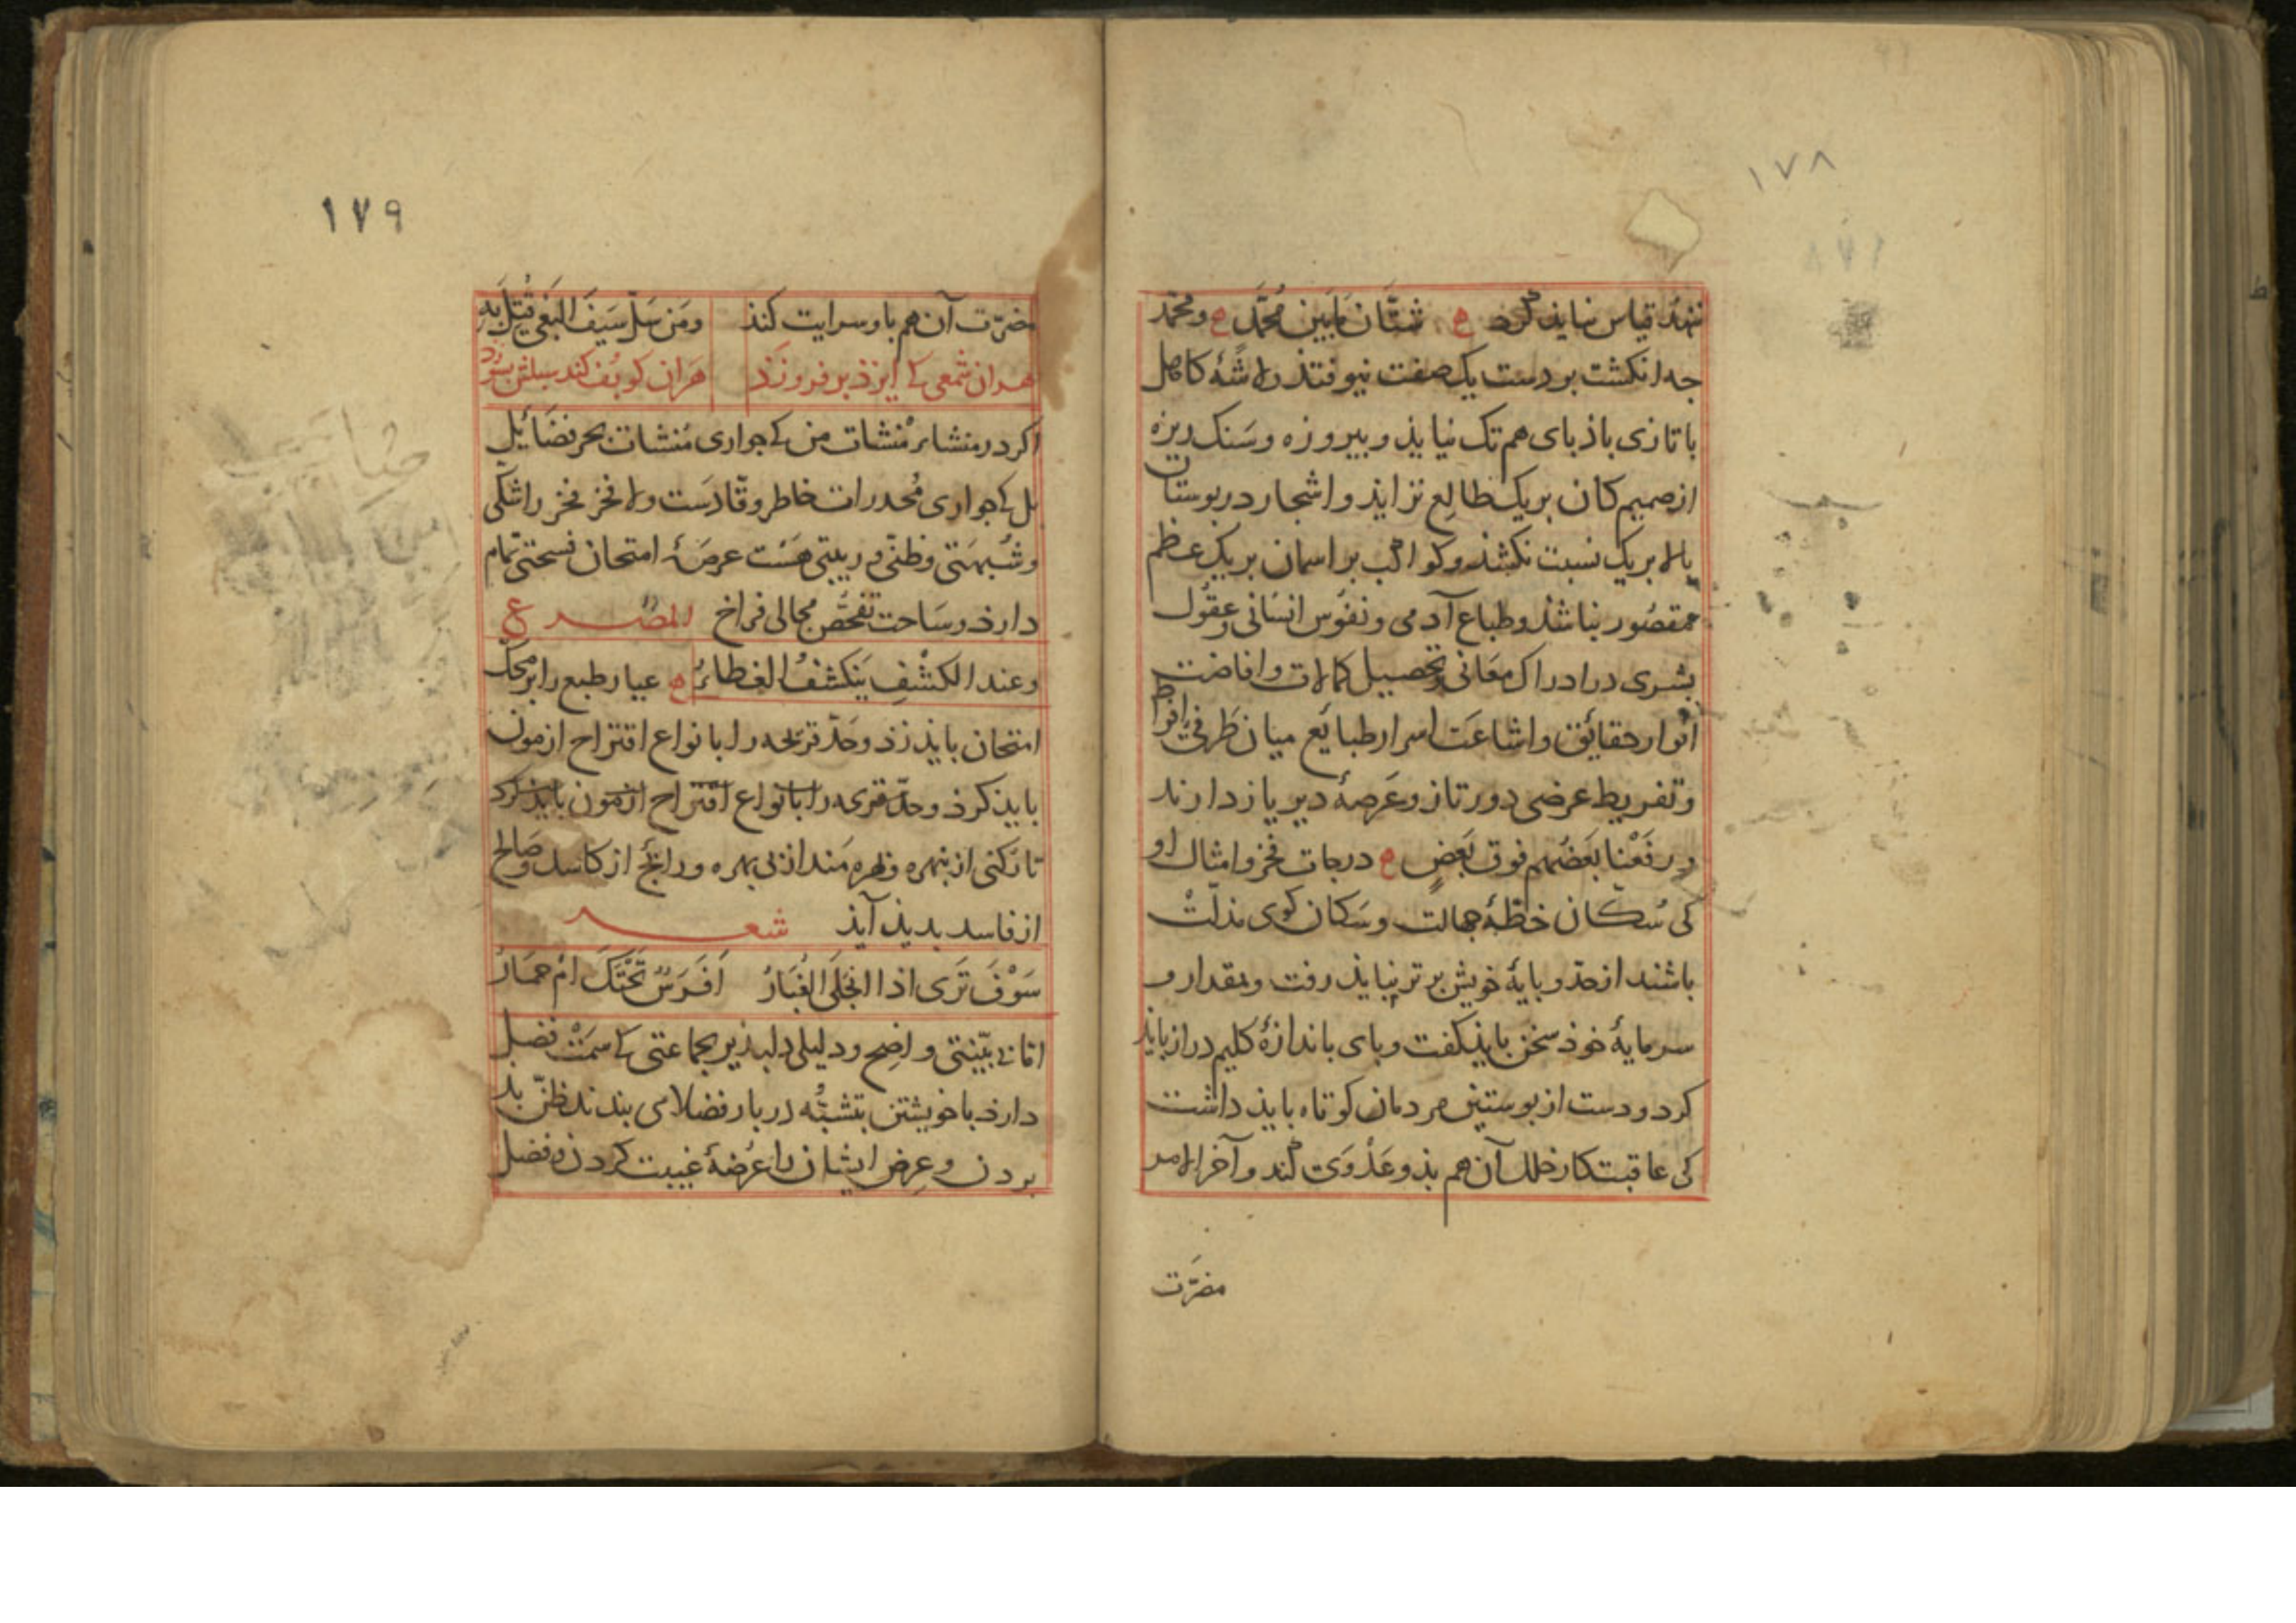 ١٧٨
نهد قیاس نباید کرد ع شَتَّان مَابَین مُحَمَّدٍ ع و محمّد
جه انکشت بر دست یک صفت نیوفتذ ولاشهٔ کاهل
با تازی باذبای هم تک نیایذ و بیروزه و سَنک ریزه
از صمیم کان بر یک طالِع نزایذ و اشجار در بوستان
بالا بر یک نسبت نکشذ و کواکب بر اسمان بر یک عظم
مقصُور نباشذ و طباع آدمی و نفوس انسانی و عقول
بشری در ادراک معَانی و تحصیل کمالات و افاضت
انوار حقائق و اشاعَت اسرار طبایع میان طَرفَی افراط
و تفریط عرضی دور تاز و عَرصهٔ دیر یاز دارند
و رفَعْنا بَعضُهم فوق بَعضٍ ع درجات فخر و امثال او
کی سُکان خطهٔ جهالت و سَکان کوی مذلّت
باشند از حدّ و بایهٔ خویش برتر نبایذ رفت و بمقدار و
سرمایهٔ خوذ سخن بایذ کفت و بای باندازهٔ کلیم دراز باید
کرد و دست از بوستین مردمان کوتاه بایذ داشت
کی عاقبت کار خلل آن هم بذو عَدْوَی کند و آخر الامر
مضرّت
١٧٩
مضرّت آن هم باو سرایت کنذ ومَن سَلّ سَیفَ البَغی قُتِلَ بَهِ
هران شمعی که ایزذ بر فروزَذ هَران کو بُف کند سبلتش بسوزد
اکر در منشائر مُنشات من که جواری مُنشات بحر فضَائل
بل که جواری مُخدرات خاطر وقّادسَت ولا فخز فخر را شکی
و شُبهَتی و ظنّی و ریبتی هَسْت عرصَهٔ امتحان فسحتی تمام
دارذ و سَاحت تفحُّص مجالی فراخ المصـرع
وعند الکشْفِ یَنکشفُ الغطاءُ ع عیار طبع را بر محکّ
امتحان بایذ زذ و حَدّ قریحه را با نواع اقتراح ازمون
بایذ کرذ و حدّ قریحه را بانواع اقتراح ازمون بایذ کرد
تا زکنی از بنهره و بهره مَند از بی بهره و رائج از کاسد و صَالح
از فاسد بدیذ آیذ شعـــر
سَوْفَ تَرَی اذا انجَلَی الغُبَارُ اَفَرَسٌ تَحْتَکَ ام حمَارُ
امّا بی بیّنتی واضح و دلیلی دلبذیر بجماعتی که سمَتْ فضل
دارذ با خویشتن بتشبُّه در بار فضلا می بندند ظنّ بد
بردن و عِرض ایشان را عُرْضهٔ غیبت کردن و فضل